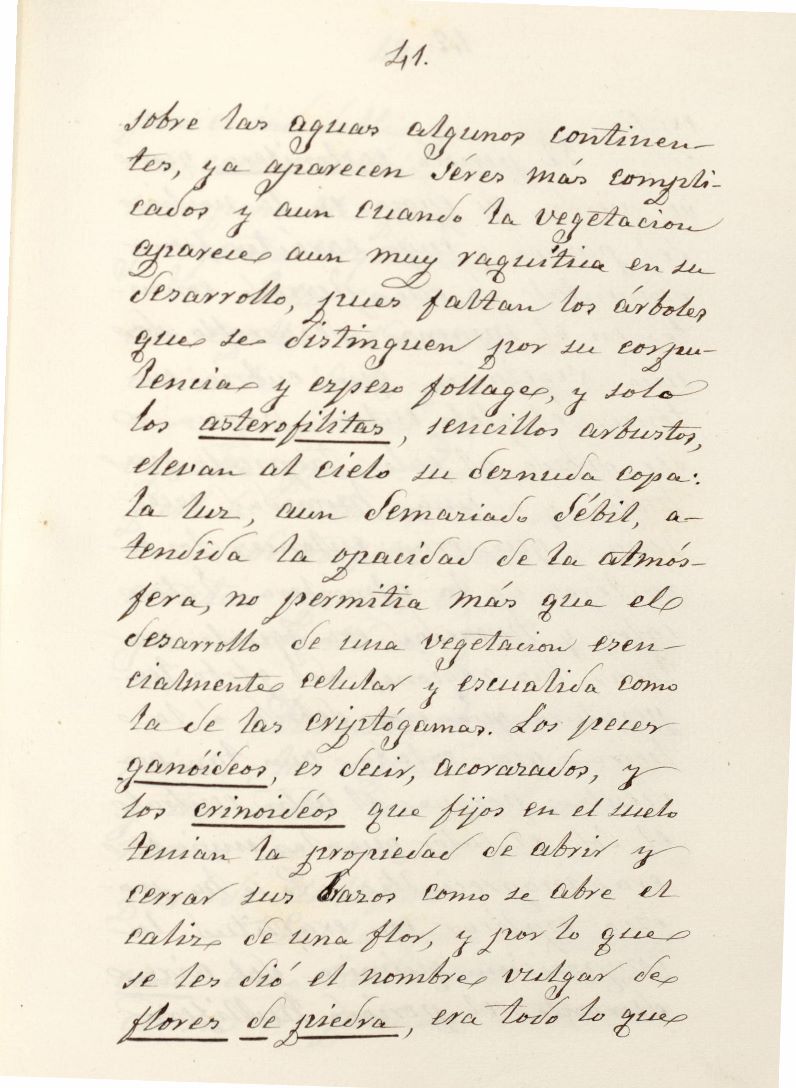 41.
sobre las aguas algunos continen-
tes, ya aparecen séres más compli-
cados y aun cuando la vegetacion
aparece aun muy raquítica en su
desarrollo, pues faltan los árboles
que se distinguen por su corpu-
lencia y espeso follage, y solo
los asterofilitas, sencillos arbustos,
elevan al cielo su desnuda copa:
la luz, aun demasiado débil, a-
tendida la opacidad de la atmós-
fera, no permitia más que el
desarrollo de una vegetacion esen-
cialmente celular y escualida como
la de las criptógamas. Los peces
ganóideos, es decir, acorazados, y
los crinoidéos que fijos en el suelo
tenian la propiedad de abrir y
cerrar sus bazos como se abre el
caliz de una flor, y por lo que
se les dió el nombre vulgar de
flores de piedra, era todo lo que